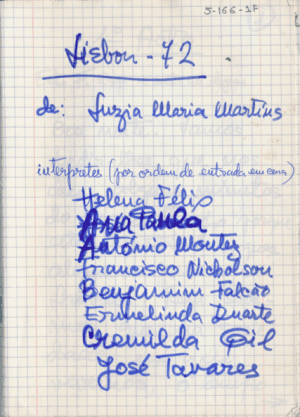 5-166-1F
Lisbon - 72
de: Luzia Maria Martins
interpretes (por ordem de entrada em cena)
Helena Félix
Ana Paula
António Montez
Francisco Nicholson
Benjamim Falcão
Ermelinda Duarte
Cremilda Gil
José Tavares